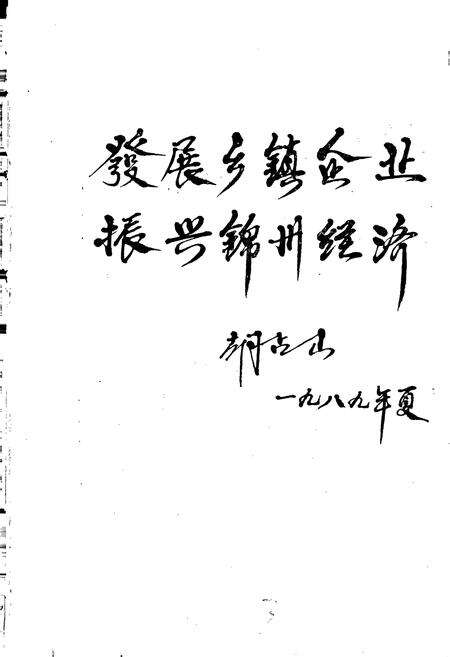 發展乡鎮企业
振兴錦州经济
胡占山
一九八九年夏